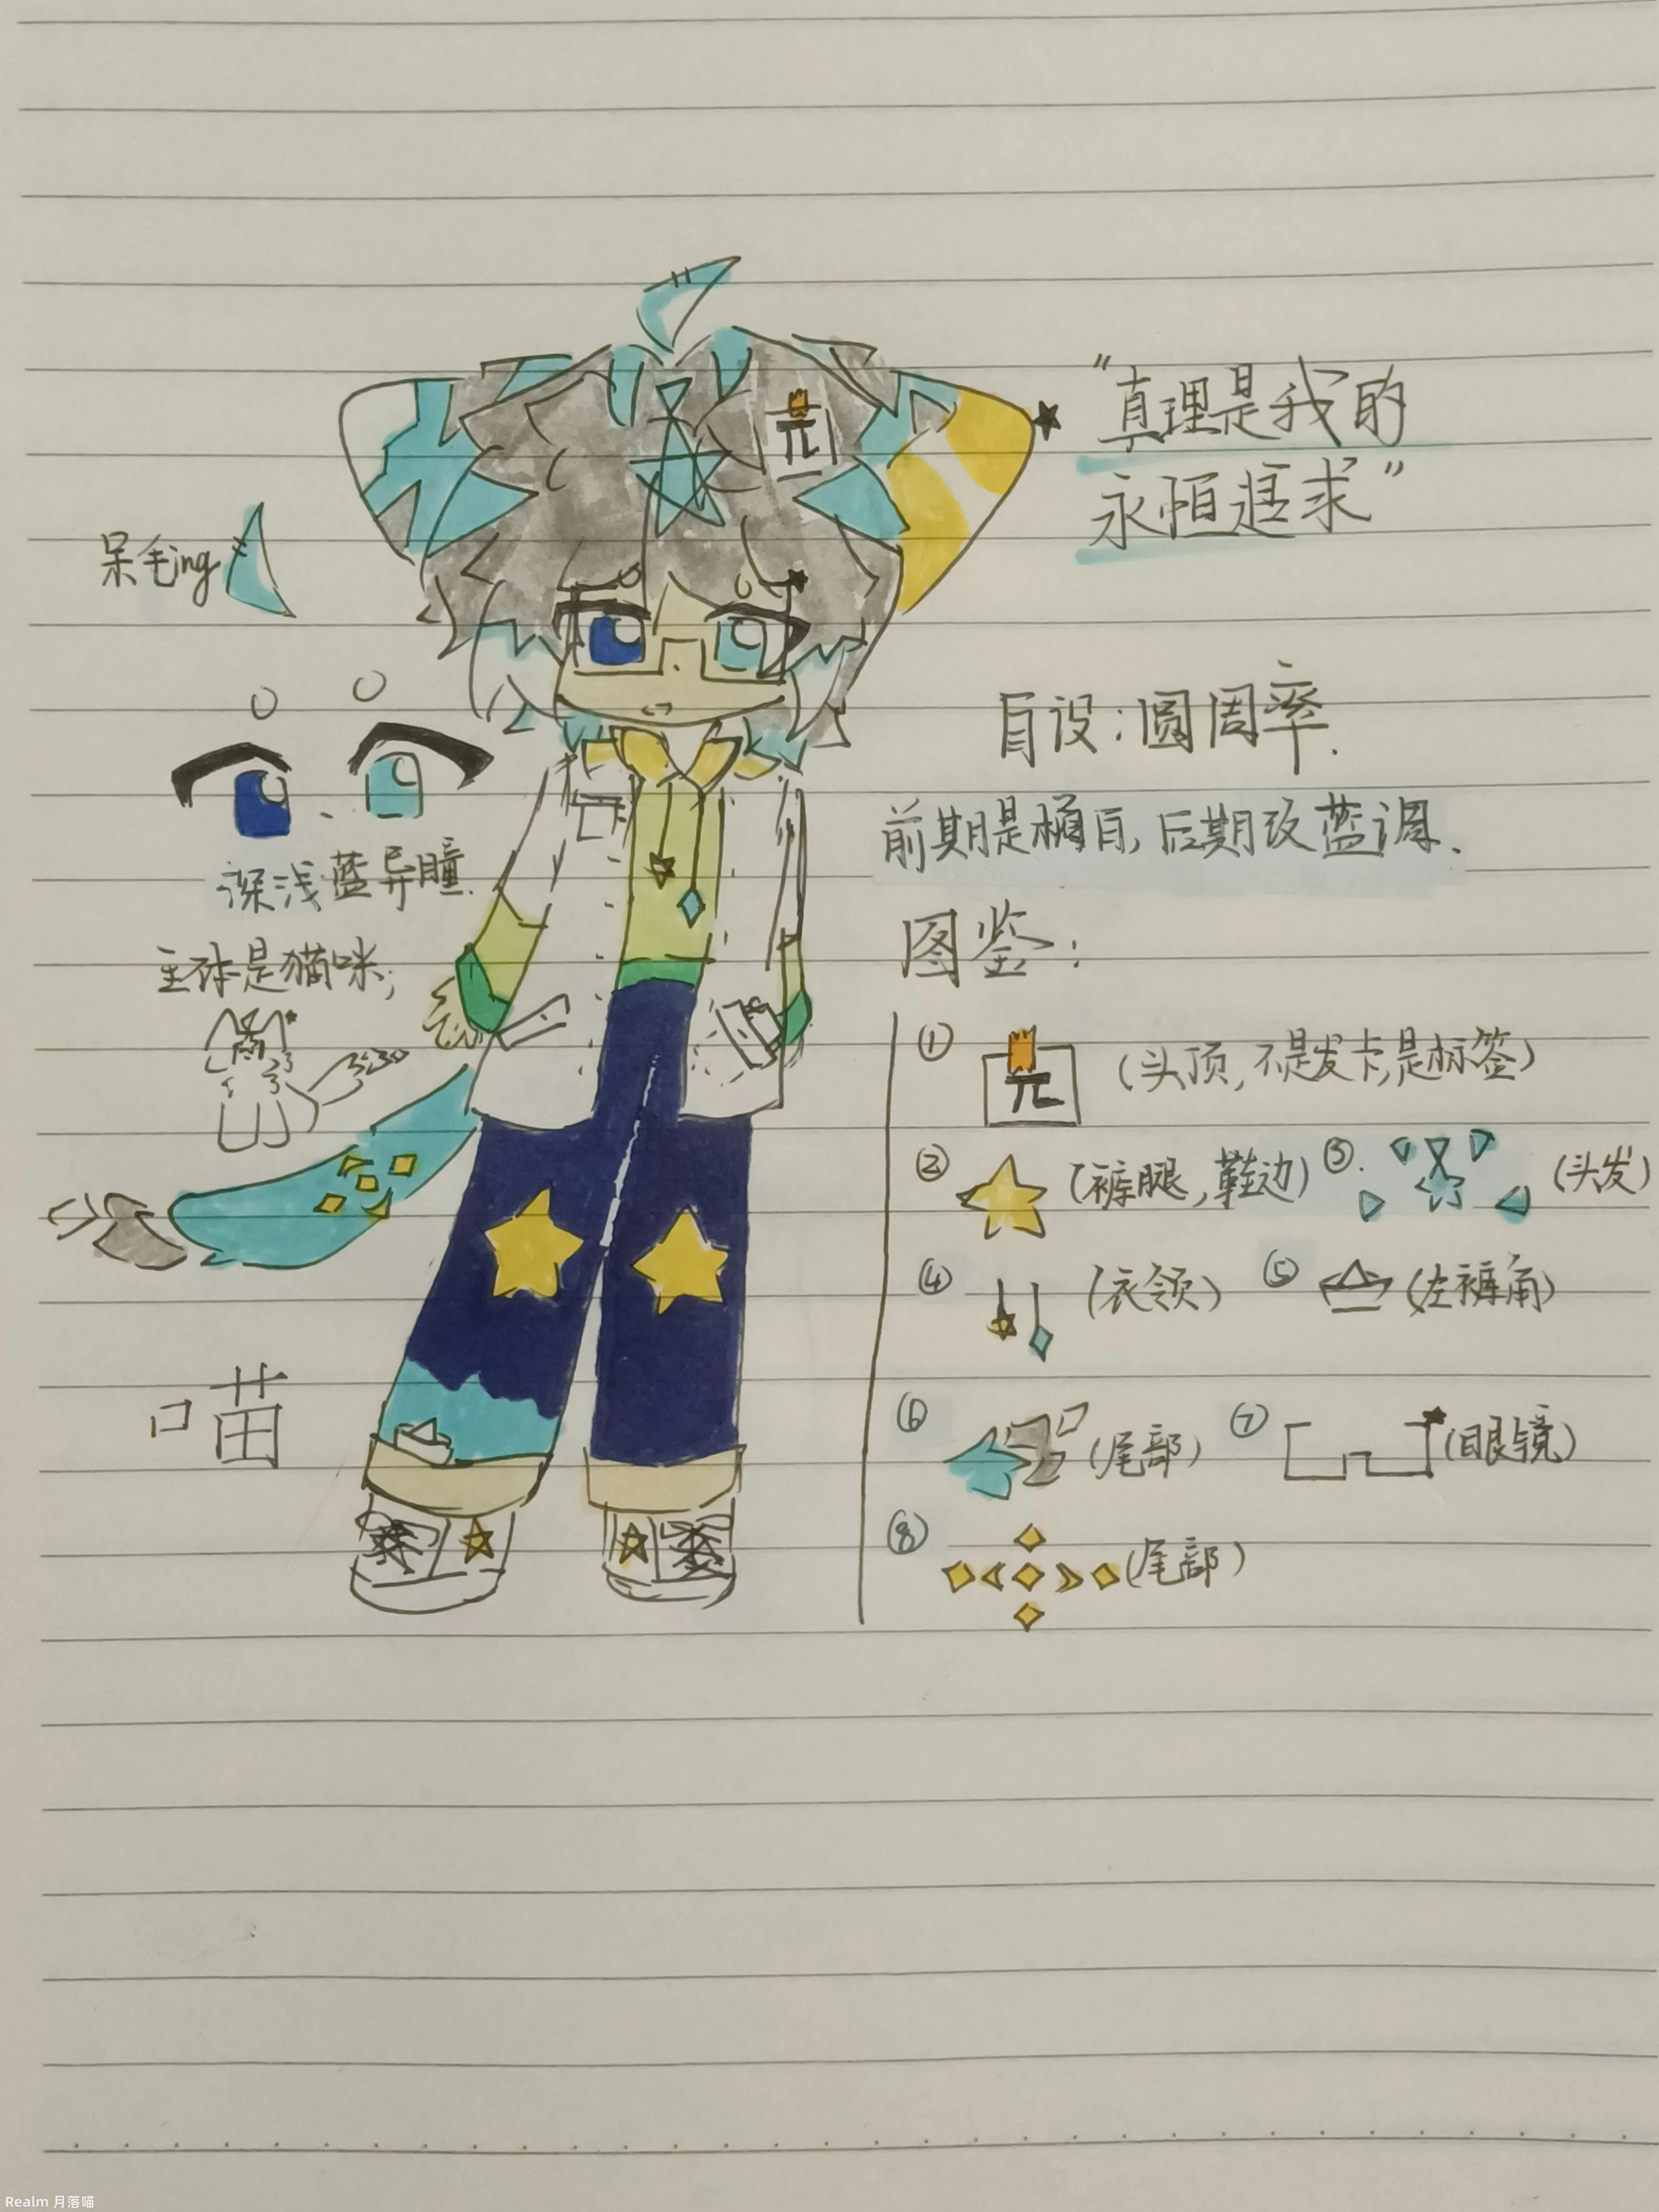 "真理是我的
永恒追求"
呆毛ing
自设:圆周率.
前期是橘白,后期改蓝调.
深浅蓝异瞳.
主体是猫咪;
图鉴:
① π (头顶,不是发卡,是标签)
② (裤腿,鞋边) ③. (头发)
④ (衣领) ⑤ (左裤角)
喵
⑥ (尾部) ⑦ (眼镜)
⑧ (尾部)
π
Realm 月落喵